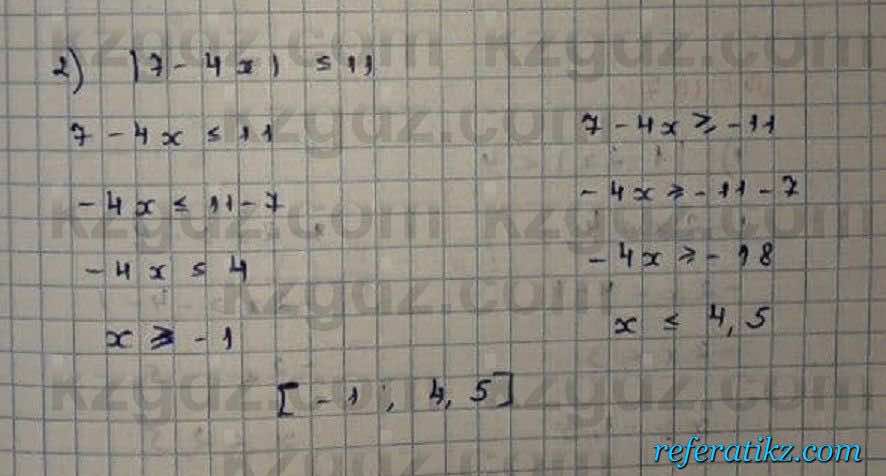 2) |7 - 4x| ≤ 11
7 - 4x ≤ 11
-4x ≤ 11 - 7
-4x ≤ 4
x ≥ -1
7 - 4x ≥ -11
-4x ≥ -11 - 7
-4x ≥ -18
x ≤ 4,5
[-1; 4,5]
kzgdz.com kzgdz.com
kzgdz.com
kzgdz.com kzgdz.com
kzgdz.com
kzgdz.com kzgdz.com
referatikz.com